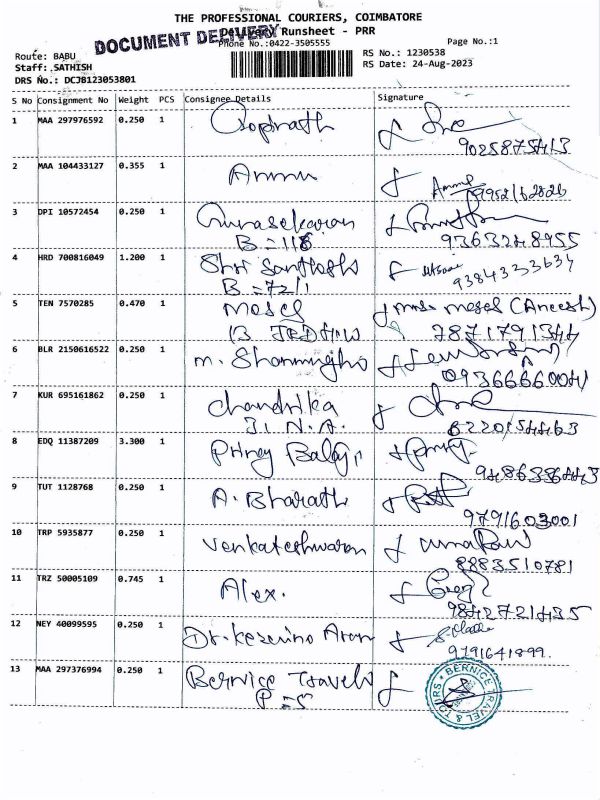 THE PROFESSIONAL COURIERS, COIMBATORE
Delivery Runsheet - PRR
DOCUMENT DELIVERY
Phone No.:0422-3505555
Page No.:1
Route: BABU
Staff: SATHISH
DRS No.: DCJB123053801
RS No.: 1230538
RS Date: 24-Aug-2023
S No Consignment No Weight PCS Consignee Details Signature
1 MAA 297976592 0.250 1 Gopinath
9025875413
2 MAA 104433127 0.355 1 Ammu
3 DPI 10572454 0.250 1 Gunasekaran
B = 118
9363248955
4 HRD 700816049 1.200 1 Shri Santhosh
B = 72/1
9384333634
5 TEN 7570285 0.470 1 Moses
Moses (Aneesh)
7871791344
6 BLR 2150616522 0.250 1 M. Shanmugha
7 KUR 695161862 0.250 1 Chandrika
31. N.A.
8220154463
8 EDQ 11387209 3.300 1 Balaji
9486336443
9 TUT 1128768 0.250 1 A. Bharath
9791603001
10 TRP 5935877 0.250 1 Venkateshwaran
8883510781
11 TRZ 50005109 0.745 1 Alex.
9842721435
12 NEY 40099595 0.250 1 Dr. Aron
9791641899.
13 MAA 297376994 0.250 1 Bernice Travels
P = 5
BERNICE
TRAVEL & TOURS